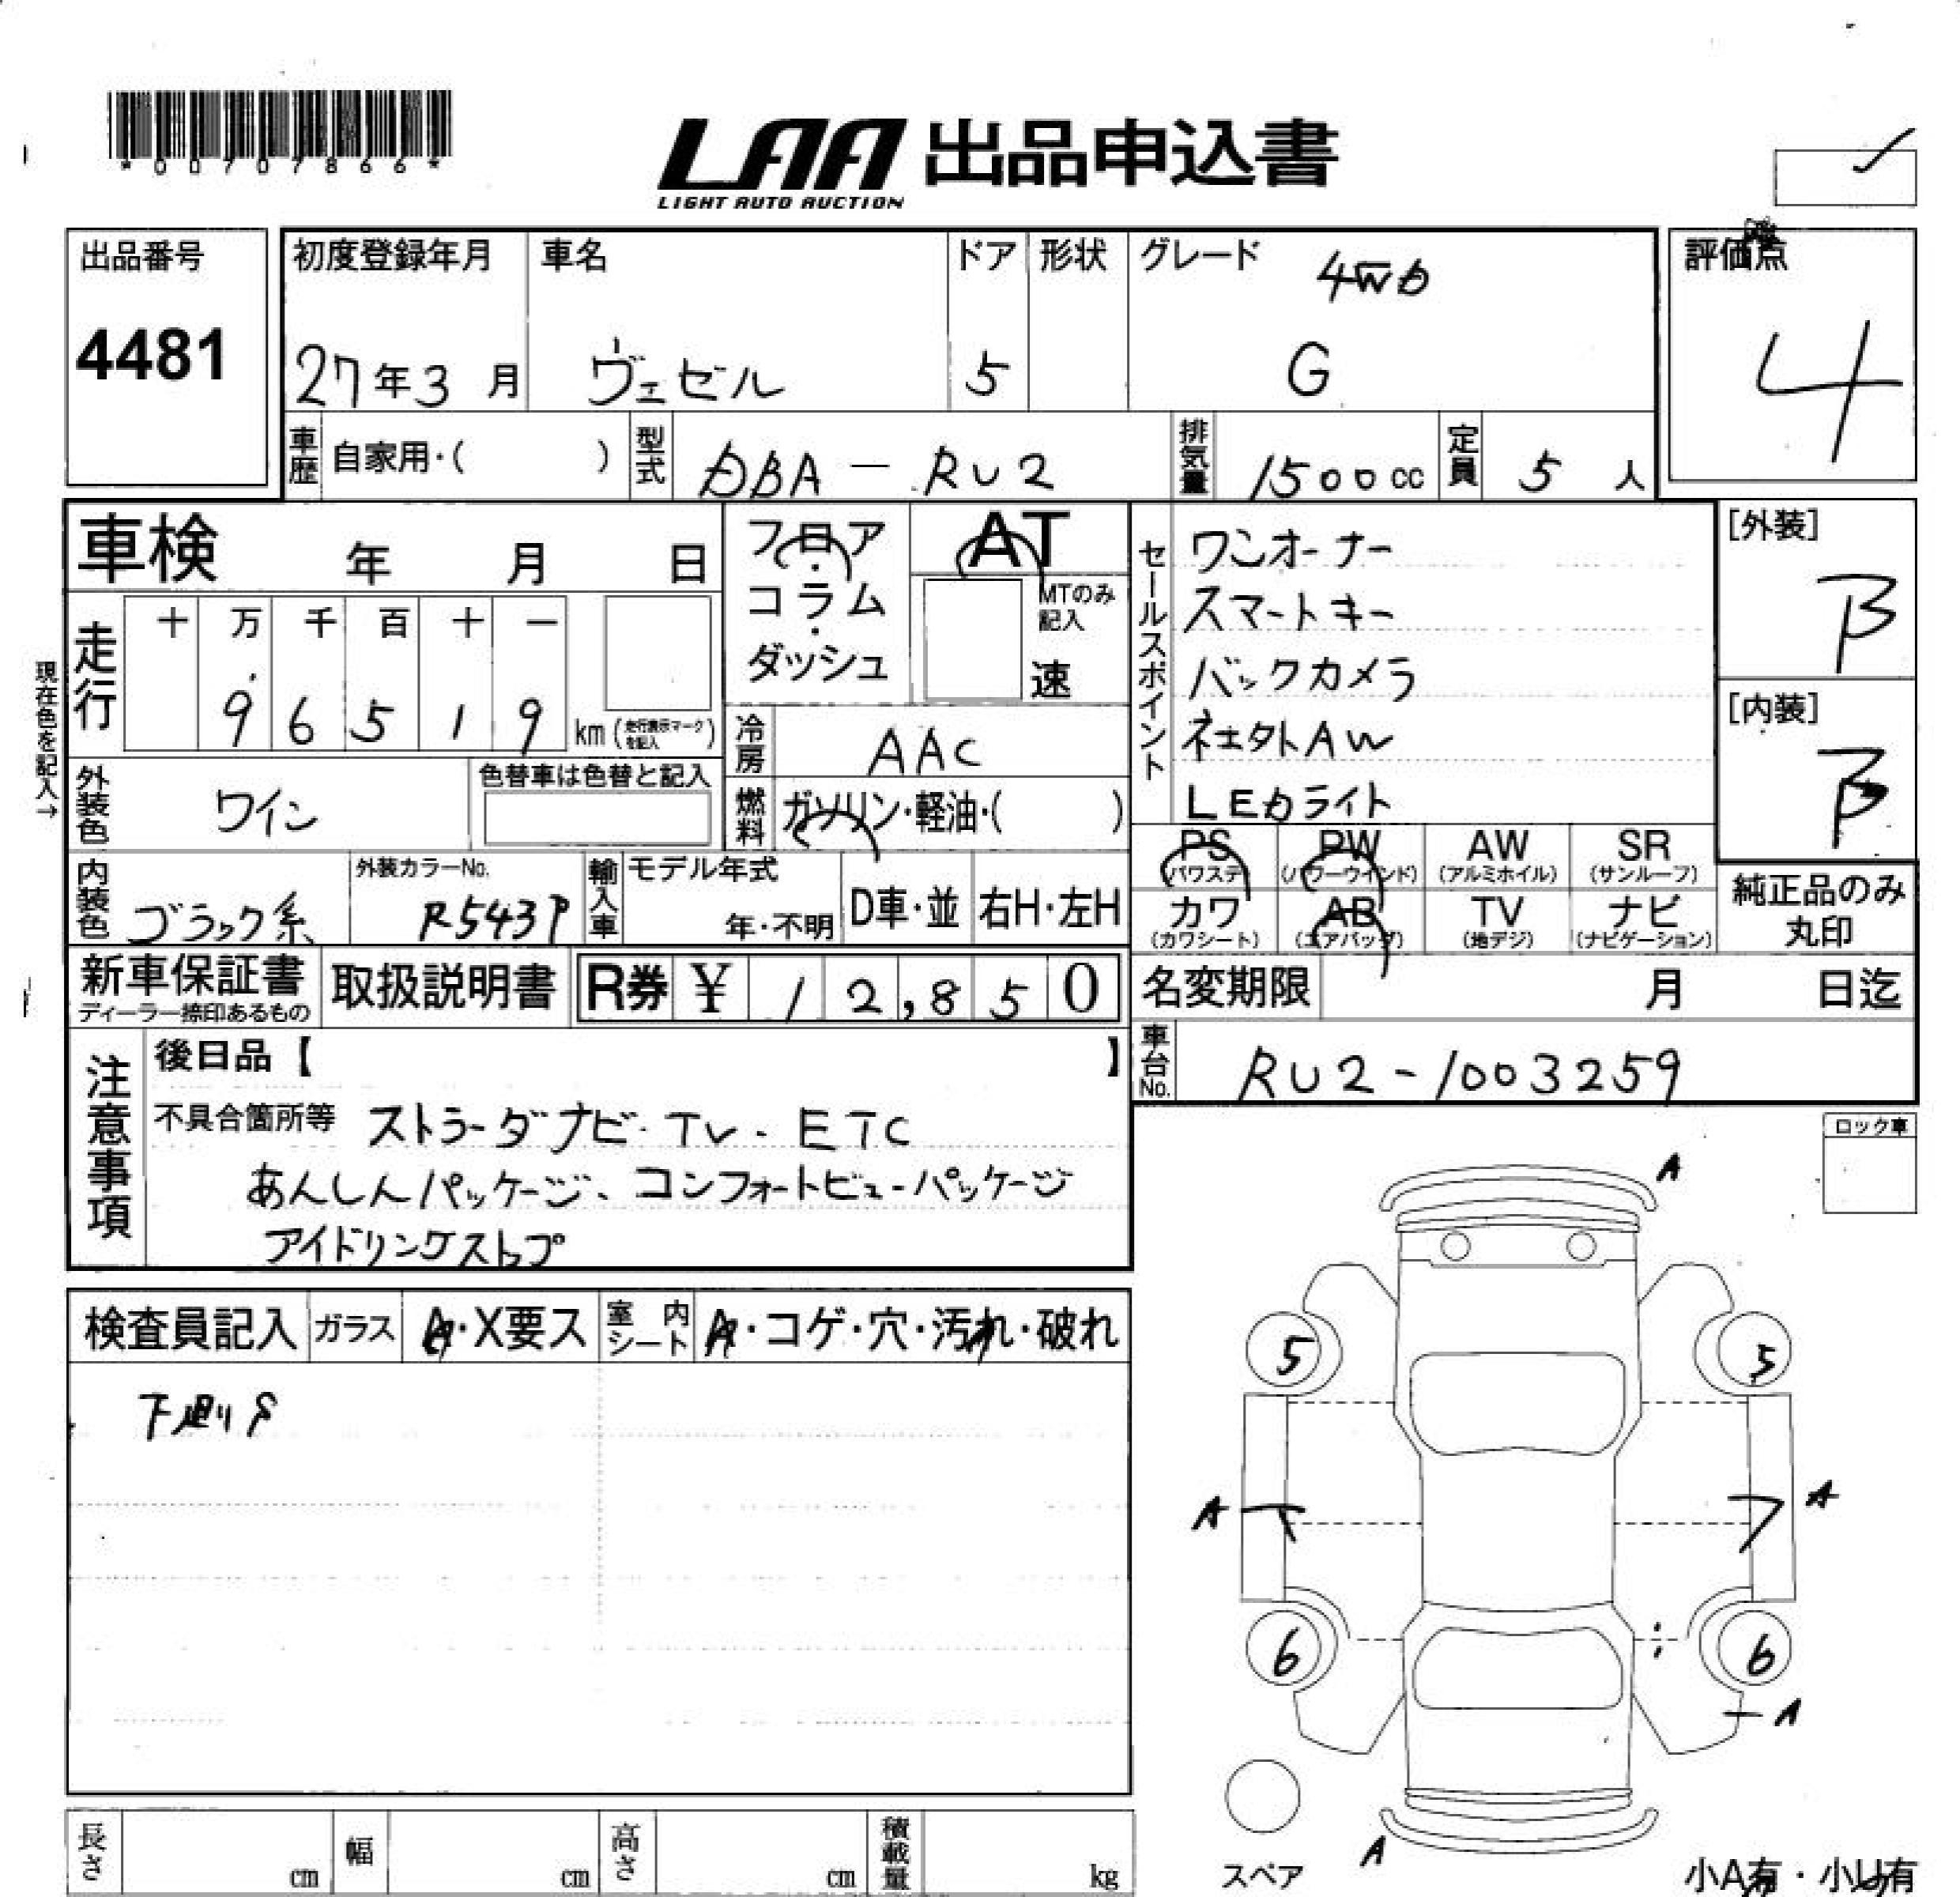 *00707866*
LAA 出品申込書
LIGHT AUTO AUCTION
出品番号
4481
初度登録年月
27年3月
車名
ヴェゼル
ドア
5
形状
グレード
4WD
G
評価点
4
車歴 自家用・( )
型式 DBA-RU2
排気量 1500cc
定員 5人
車検 年 月 日
フロア・コラム・ダッシュ
AT
MTのみ記入
速
セールスポイント
ワンオーナー
スマートキー
バックカメラ
社外AW
LEDライト
[外装]
B
[内装]
B
現在色を記入→
走行 十 万 千 百 十 一
9 6 5 1 9 km (走行表示マークを記入)
冷房 AAC
外装色 ワイン
色替車は色替と記入
燃料 ガソリン・軽油・( )
PS (パワステ)
PW (パワーウインド)
AW (アルミホイル)
SR (サンルーフ)
カワ (カワシート)
AB (エアバッグ)
TV (地デジ)
ナビ (ナビゲーション)
純正品のみ丸印
内装色 ブラック系
外装カラーNo. R543P
輸入車 モデル年式 年・不明
D車・並 右H・左H
新車保証書
ディーラー捺印あるもの
取扱説明書
R券 ¥ 12,850
名変期限 月 日迄
車台No. RU2-1003259
注意事項
後日品【 】
不具合箇所等 ストラーダナビ・TV・ETC
あんしんパッケージ、コンフォートビューパッケージ
アイドリングストップ
ロック車
検査員記入 ガラス A・X要ス
室内シート A・コゲ・穴・汚れ・破れ
下廻りS
A
5 5
A A
6 6
A
A
スペア
小A有・小U有
長さ cm
幅 cm
高さ cm
積載量 kg